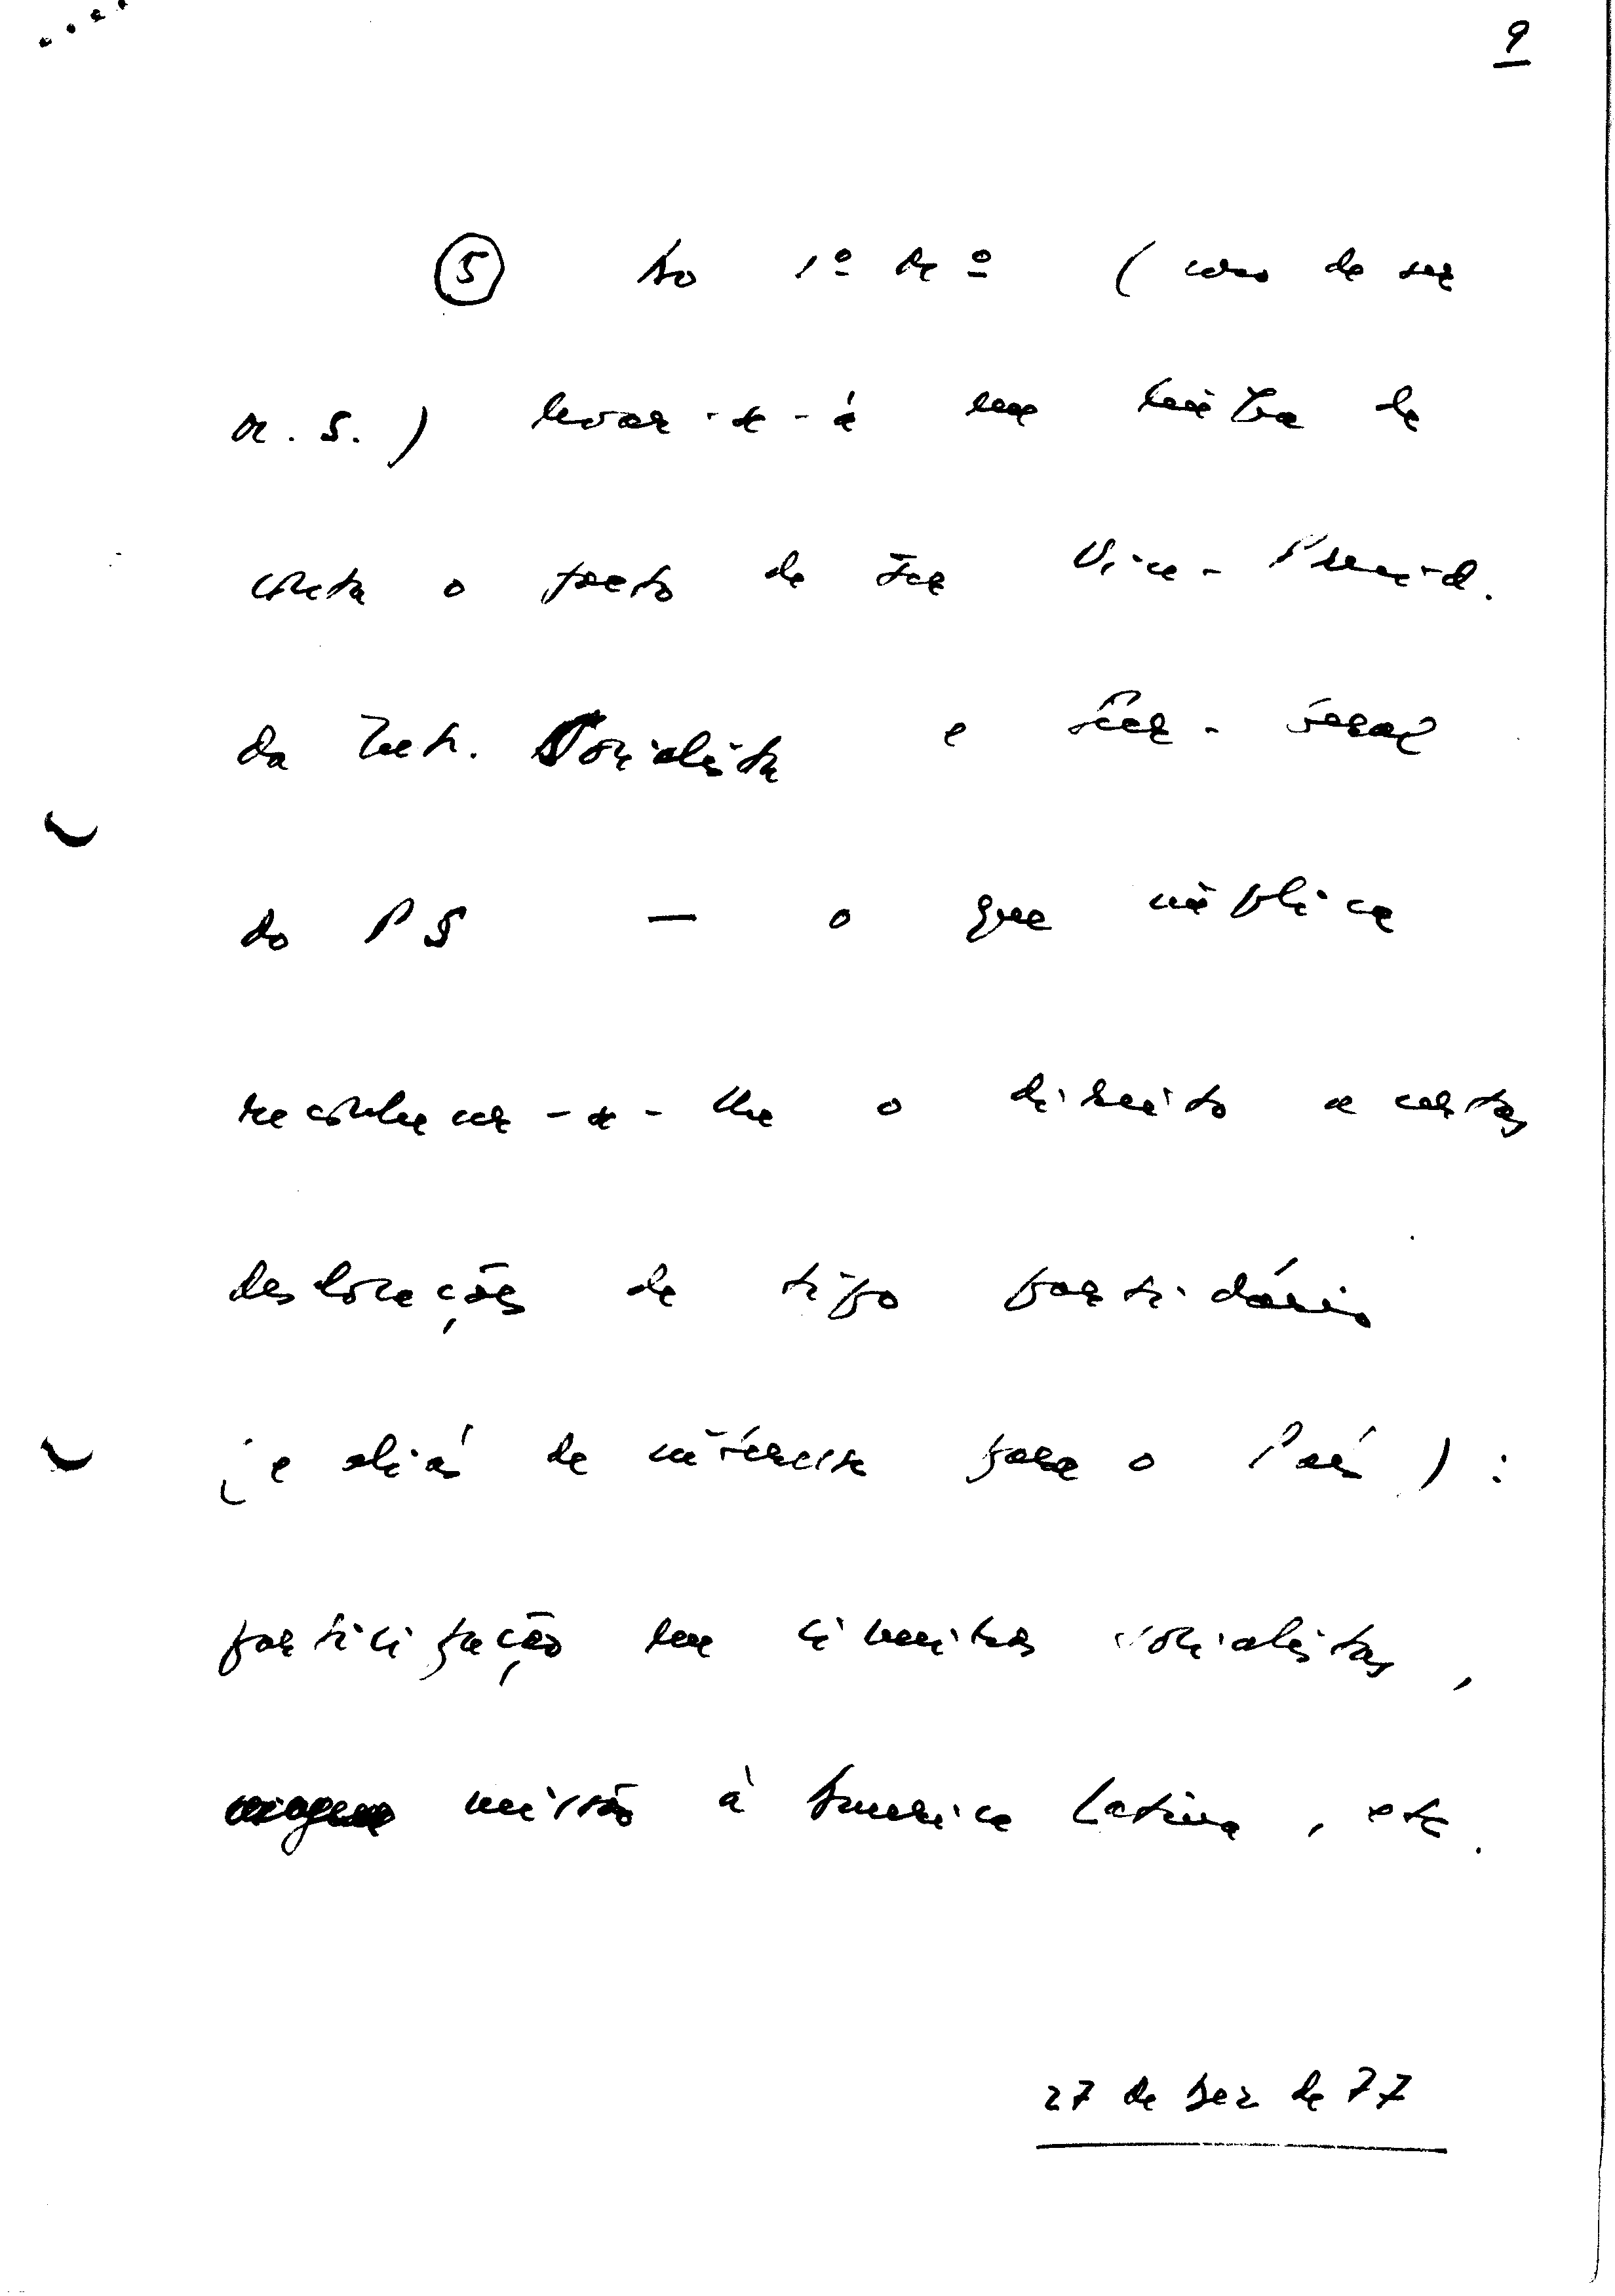 9
⑤ Ao 1º Mº (caso de ser
M. S.) levar-se-á em linha de
conta o facto de ser Vice-Presid.
da Int. Socialista e Secr-Geral
do PS — o que implica
reconhecer-se-lhe o direito a certas
deslocações de tipo partidário
(e aliás de interesse para o País):
participação em cimeiras socialistas,
missão à America Latina, etc.
27 de Dez de 77